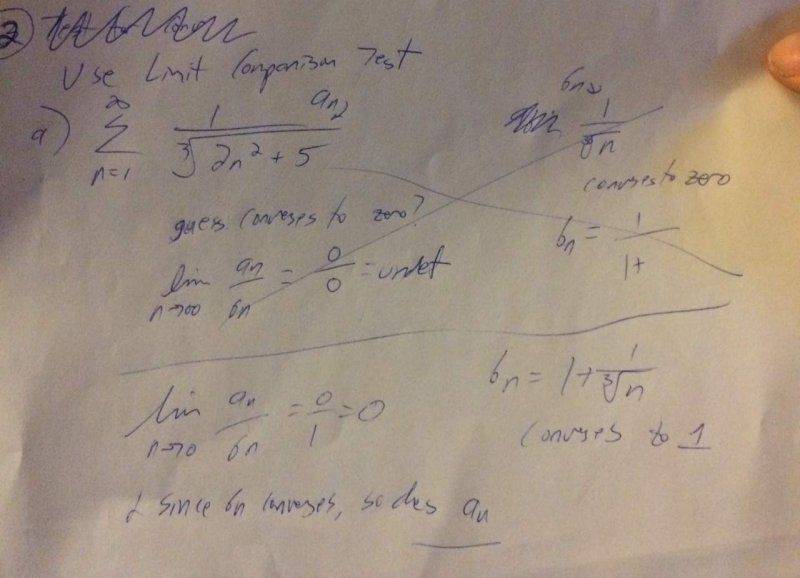 2)
Use Limit Comparison Test
a) ∑_{n=1}^{∞} 1/∛(2n² + 5) a_n
b_n = 1/∛n
converges to zero
guess converges to zero?
b_n = 1/1+
lim_{n→∞} a_n/b_n = 0/0 = undef
b_n = 1 + 1/∛n
lim_{n→∞} a_n/b_n = 0/1 = 0
converges to 1
& since b_n converges, so does a_n